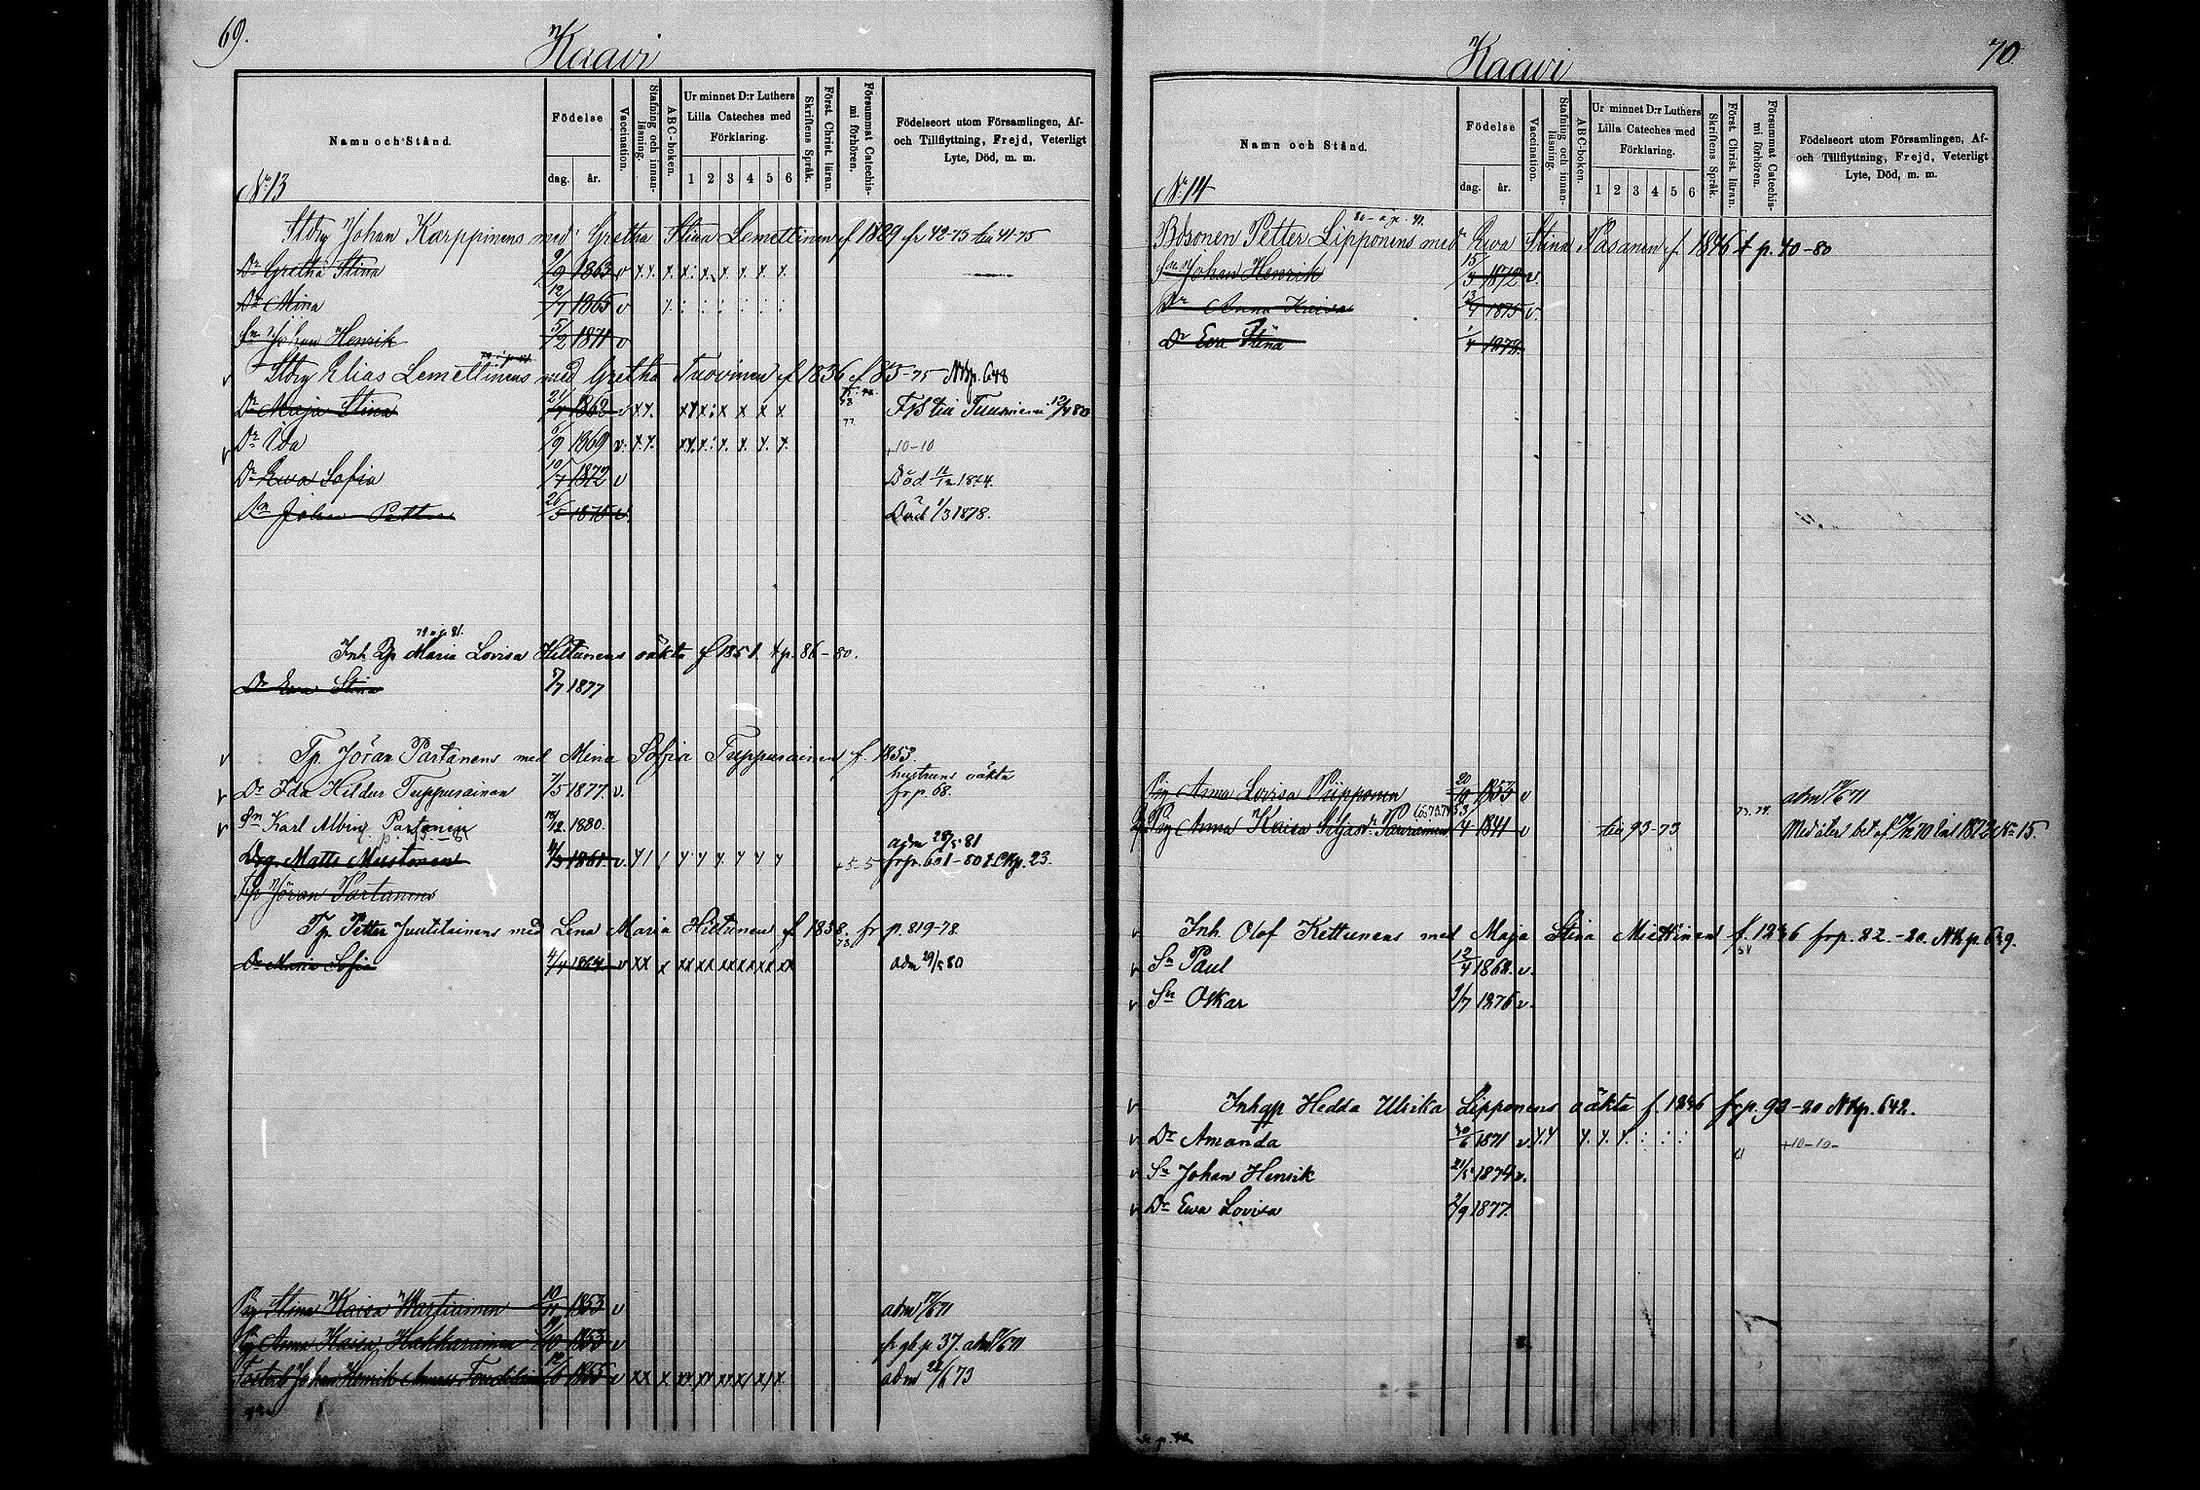 69.
Kaavi
Namn och Stånd.
Födelse
dag.
år.
Vaccination.
Stafning och innan-läsning.
ABC-boken.
Ur minnet D:r Luthers
Lilla Cateches med
Förklaring.
1 2 3 4 5 6
Skriftens Språk.
Först. Christ. läran.
Försummat Catechis-mi förhören.
Födelseort utom Församlingen, Af-
och Tillflyttning, Frejd, Veterligt
Lyte, Död, m. m.
No 13
Johan Karppinens med Gretha Stina Lemettinen f 1829 fr 42-75 till 41-75
Dr Gretha Stina 9/9 1863 v x x. x. x. x. x. x. x.
Dr Mina 12/7 1865 v
Sn Johan Henrik 5/2 1871 v
Elias Lemettinens med Gretha Tuovinen f 1836 f 83-75 Nkp. 648
Dr Maja Stina 1862 v x x.
Dr Ida 6/9 1869 v. x. x. +10-10
Dr Ewa Sofia 10/7 1872 v Död 11/12 1874.
Sn Johan Petter 26/5 1875 v. Död 1/3 1878.
79 a p 81.
Inh Qp Maria Lovisa Hiltunens oäkta f 1851. t p. 86-80.
Dr Ewa Stina 7/7 1877
v Tp. Jöran Partanens med Mina Sofia Tuppurainen f. 1853.
hustruns oäkta
v Dr Ida Hildur Tuppurainen 7/5 1877. v. fr p. 68.
v Sn Karl Albin Partanen 1880.
adm 29/5 81
Drg. Matts Mustonen 4/3 1861. v. fr p. 601-80 t. Lkp. 23.
Tp Jöran Partanens
Tp. Petter Juutilainens med Lena Maria Hiltunen f 1838. fr p. 819-78
Dr Maria Sofia 4/4 1864 v xx x adm 29/5 80
Pig Stina Kaisa Martikainen 10/11 1853 v adm 17/6 71
Pig Anna Kaisa Hakkarainen 1853 v fr gb p 37. adm 17/6 71
Johan Henrik 12/6 1855 v xx x adm 22/6 73
70.
Kaavi
Namn och Stånd.
Födelse
dag.
år.
Vaccination.
Stafning och innan-läsning.
ABC-boken.
Ur minnet D:r Luthers
Lilla Cateches med
Förklaring.
1 2 3 4 5 6
Skriftens Språk.
Först. Christ. läran.
Försummat Catechis-mi förhören.
Födelseort utom Församlingen, Af-
och Tillflyttning, Frejd, Veterligt
Lyte, Död, m. m.
No 14
Bdsonen Petter Lipponens med Ewa Stina Räsänen f. 1846 t p. 40-80
Sn Johan Henrik 15/3 1872 v.
Dr Anna Kaisa 13/4 1875 v.
Dr Ewa Stina 1/4 1878.
Pig Anna Lovisa Piipponen 20/10 1853 v adm 17/6 71
Pig Anna Kaisa Siljasdr 1841 v till 93-73
v Inh Olof Kettunens med Maja Stina Miettinens f. 1836 fr p. 82.-80. Nkp. 639.
v Sn Paul 12/4 1868. v.
v Sn Oskar 9/7 1876 v.
v Inhqp Hedda Ulrika Lipponens oäkta f. 1836 fr p. 93-80 Nkp. 642.
v Dr Amanda 30/6 1871 v. +10-10-
v Sn Johan Henrik 21/5 1874 v.
v Dr Ewa Lovisa 2/9 1877.